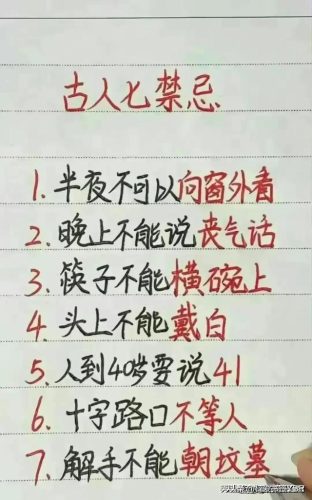 古人七禁忌
1. 半夜不可以向窗外看
2. 晚上不能说丧气话
3. 筷子不能横碗上
4. 头上不能戴白
5. 人到40岁要说41
6. 十字路口不等人
7. 解手不能朝坟墓